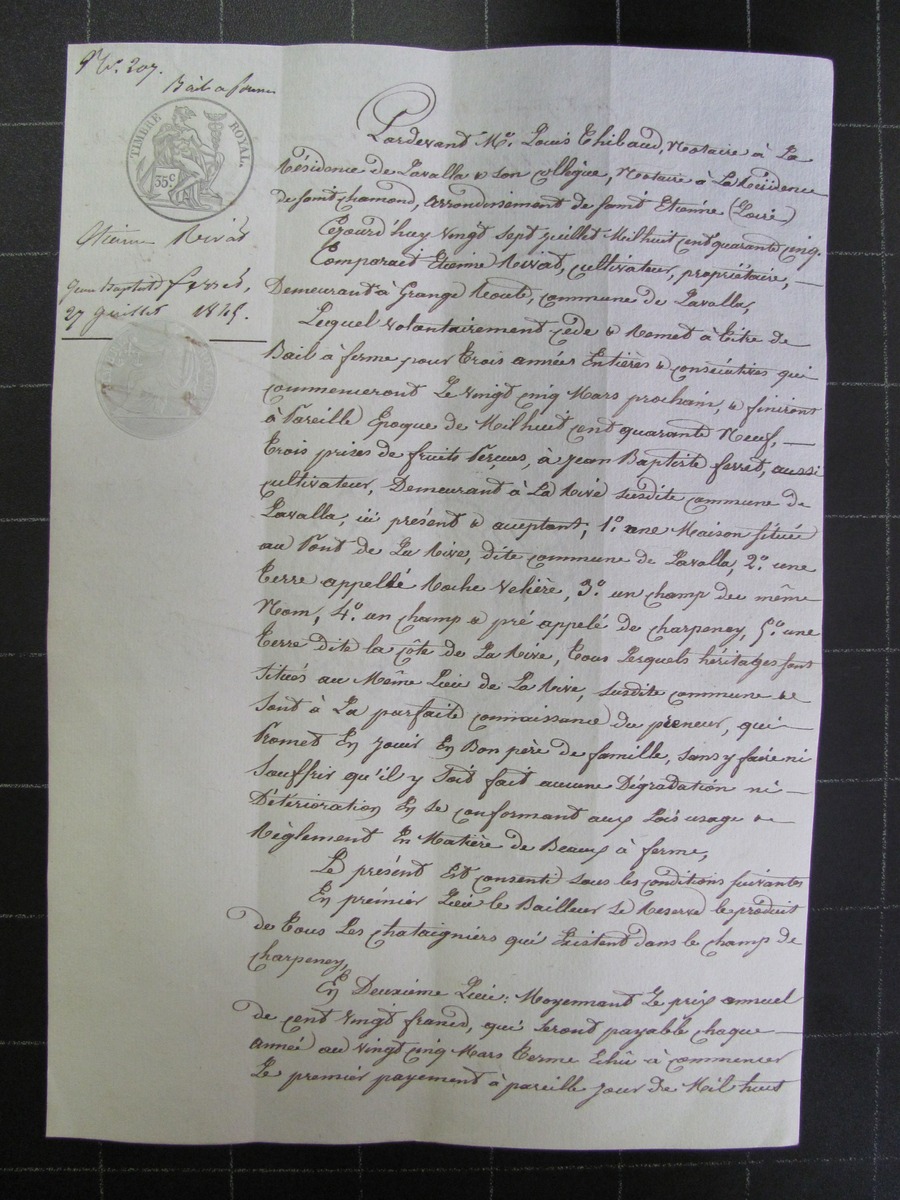 N°. 207.
Bail a ferme
TIMBRE ROYAL.
35 c
Etienne Rivat
Jean Baptiste ferret,
27 juillet 1845.
Pardevant Me. Louis Thibaud, Notaire à La
Résidence de Lavalla & son collègue, Notaire à La Résidence
de saint chamond, arrondissement de saint Etienne (Loire)
Cejourd'huy vingt sept juillet Mil huit cent quarante cinq.
Comparait Etienne Rivat, cultivateur, propriétaire, —
Demeurant à Grange Route, commune de Lavalla,
Lequel volontairement cède & Remet à titre de
Bail à ferme pour trois années Entières & consécutives qui
commenceront Le vingt cinq Mars prochain, & finiront
à Pareille Epoque de Mil huit cent quarante Neuf, —
trois prises de fruits Perçues, à Jean Baptiste ferret, aussi
cultivateur, Demeurant à La Rive susdite commune de
Lavalla, ici présent & acceptant, 1° une Maison située
au Pont de La Rive, dite commune de Lavalla, 2° une
terre appellée Roche Velière, 3° un champ du même
Nom, 4° un champ & pré appelé de charpeney, 5° une
terre dite la côte de La Rive, tous Lesquels héritages sont
situés au Même Lieu de La Rive, susdite commune &
sont à La parfaite connaissance du preneur, qui
Promet En jouir En Bon père de famille, sans y faire ni
souffrir qu'il y soit fait aucune Dégradation ni —
Détérioration En se conformant aux Lois usage &
Règlement En Matière de Beaux à ferme,
Le présent Est consenti sous les conditions suivantes
En prémier Lieu le Bailleur se Reserve le produit
de tous Les chataigniers qui Existent dans le champ de
charpeney,
En Deuxième Lieu : Moyennant Le prix annuel
de cent vingt francs, qui seront payable chaque —
année au vingt cinq Mars terme Echû à commencer
Le premier payement à pareille jour de Mil huit